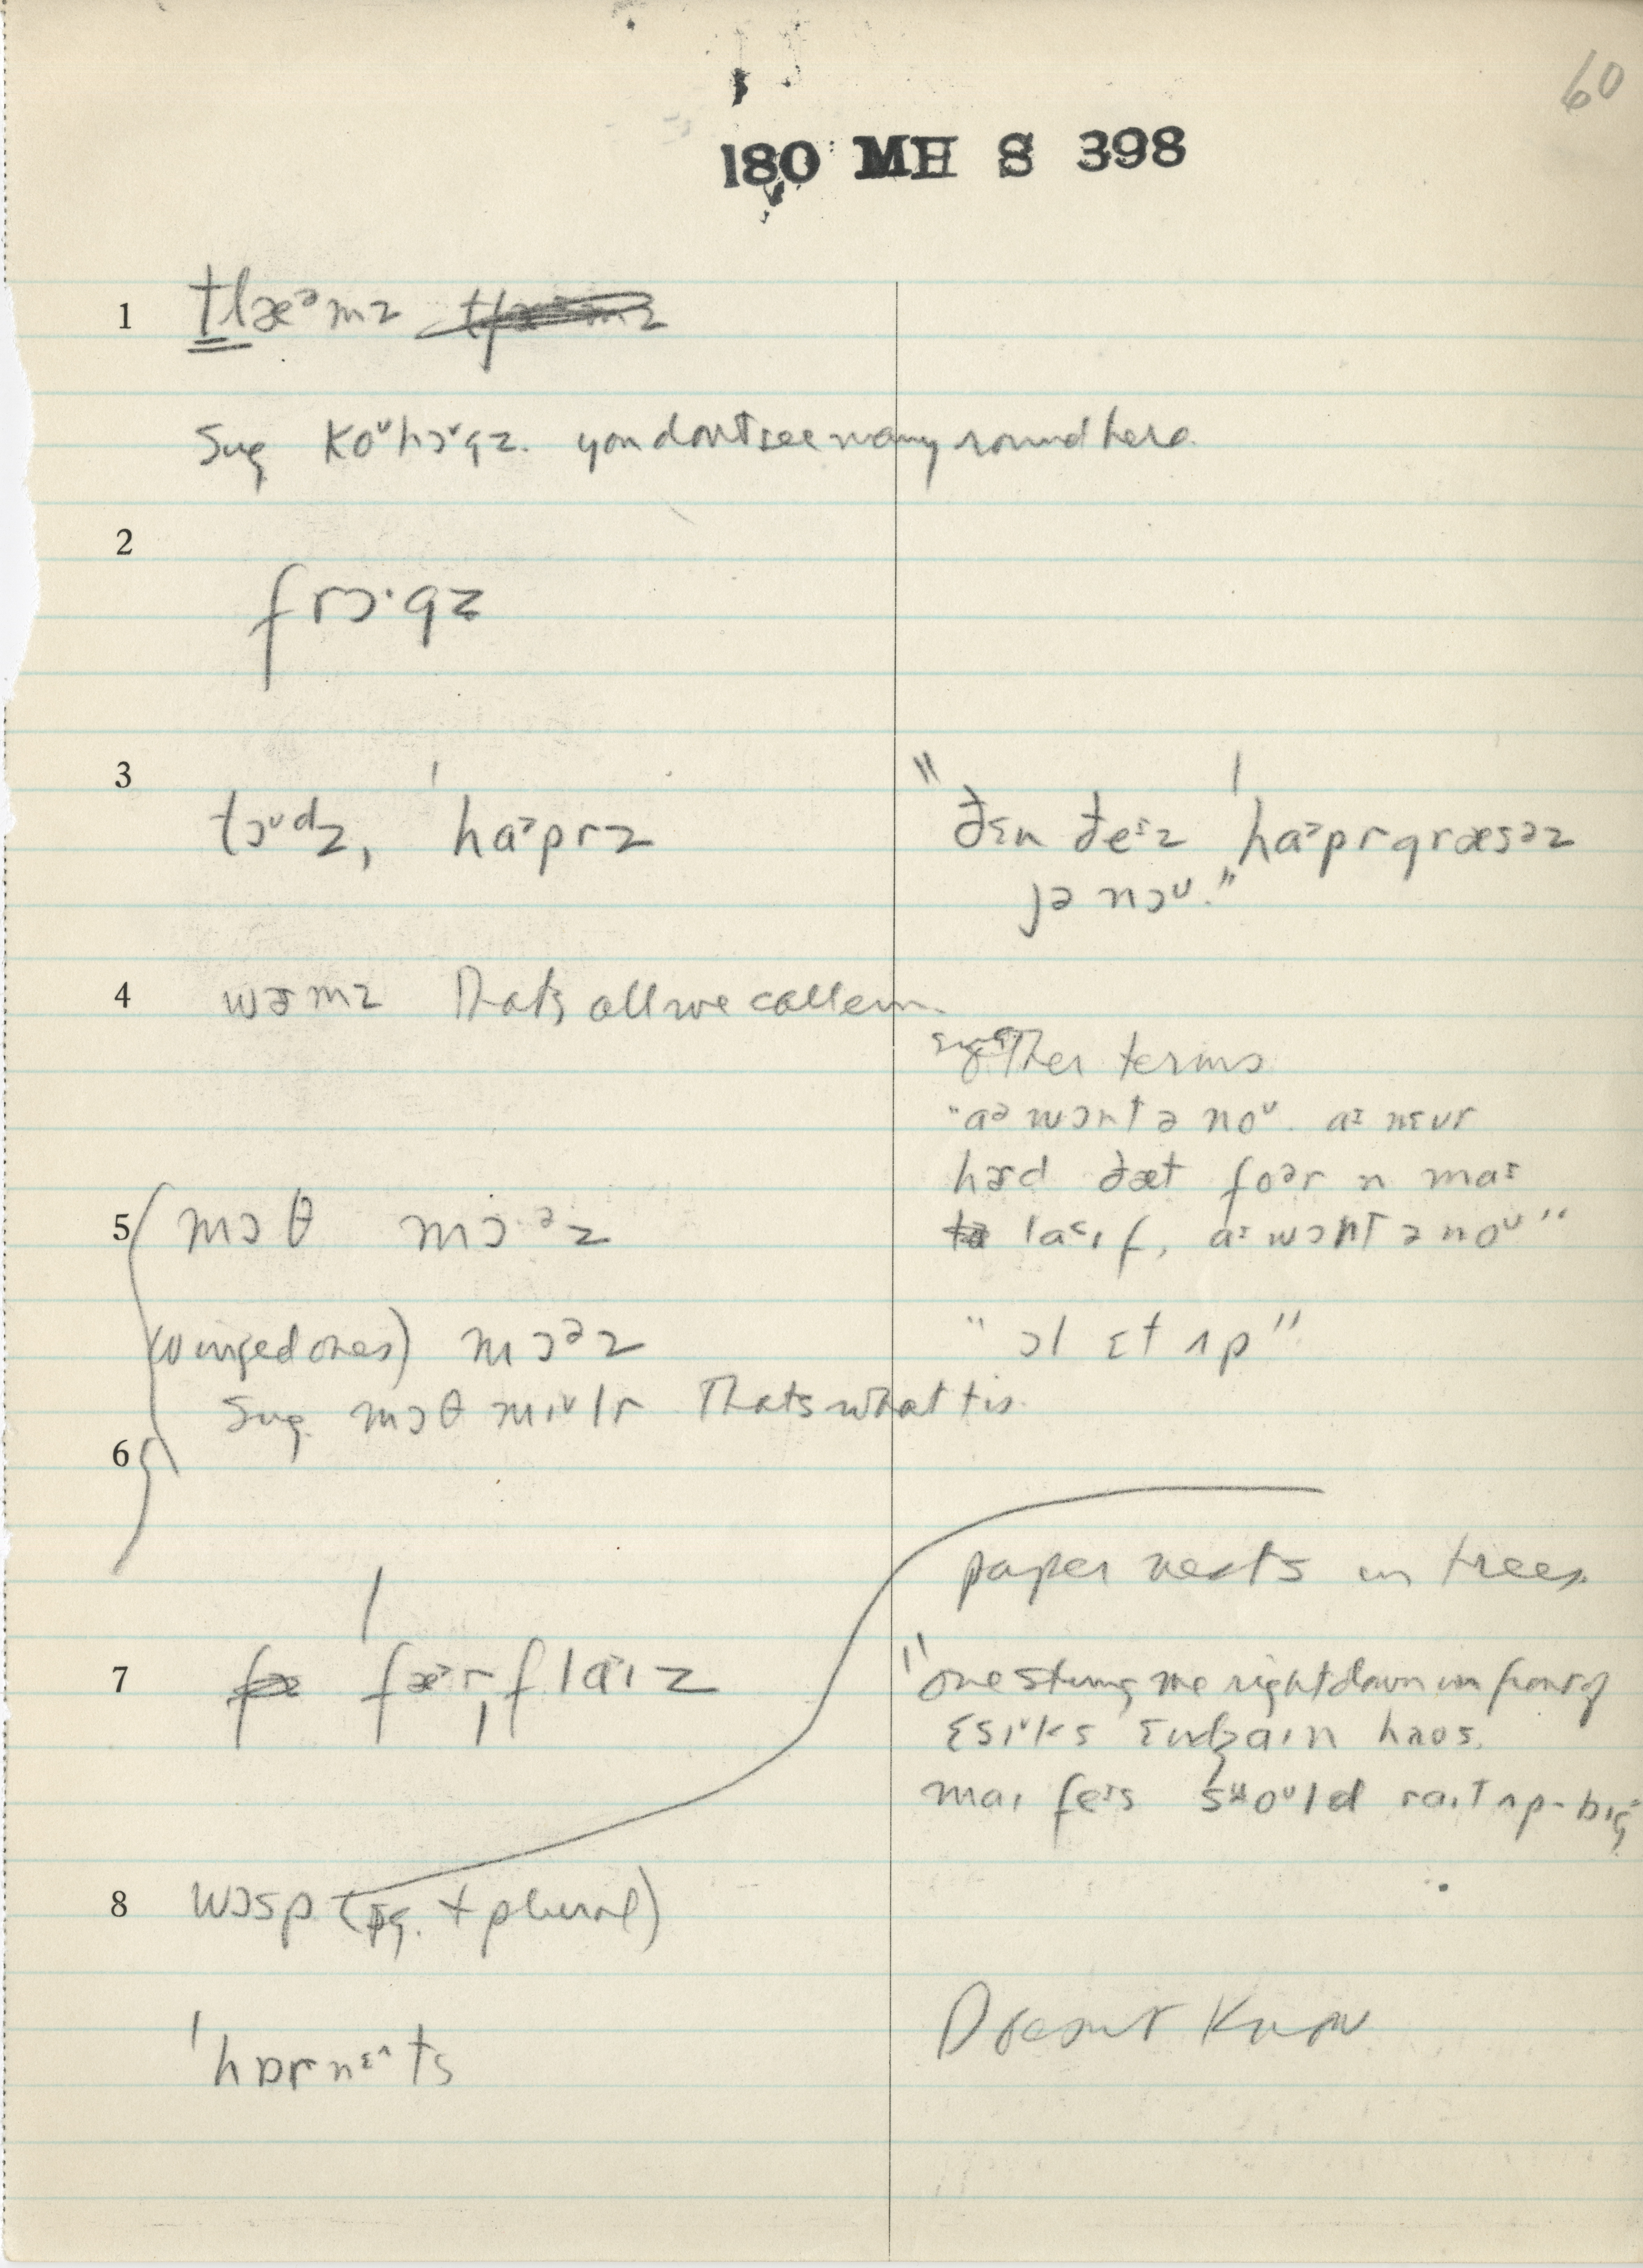 60
180 MH S 398
1 tlæᵊmz
Sug koᶷhɔᶷgz. you dont see many round here.
2
frɔ·gz
3 tɔᶷdz, ˈhaᵊprz
"ðɛn ðeɪz ˈhaᵊprgræsəz
jə nɔᶷ."
4 wɚmz Thats all we call em.
other terms
"aᵊ wɔnt ə noᶷ. aɪ nɛvr
hɚd ðæt foər n maɪ
laɪf, aɪ wɔnt ə noᶷ"
5 mɔθ mɔ·ᵊz
(winged ones) mɔᵊz
" ɔl ɛt ʌp"
Sug. mɔθ mɪᶷlr Thats what tis.
6
paper nests in trees.
7 fæᵊrˌflaɪz
"one stung me right down in front of
haʊs.
maɪ feɪs swoᶷld raɪt ʌp - big"
8 wɔsp (sg. + plural)
ˈhɒrnɛᵊts
Doesnt Know